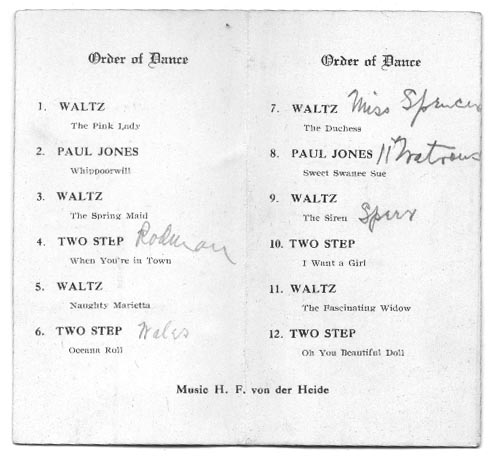 Order of Dance
1. WALTZ
The Pink Lady
2. PAUL JONES
Whippoorwill
3. WALTZ
The Spring Maid
4. TWO STEP Rodman
When You're in Town
5. WALTZ
Naughty Marietta
6. TWO STEP Wales
Oceana Roll
Order of Dance
7. WALTZ Miss Spencer
The Duchess
8. PAUL JONES " Watrous
Sweet Swanee Sue
9. WALTZ
The Siren
10. TWO STEP
I Want a Girl
11. WALTZ
The Fascinating Widow
12. TWO STEP
Oh You Beautiful Doll
Music H. F. von der Heide